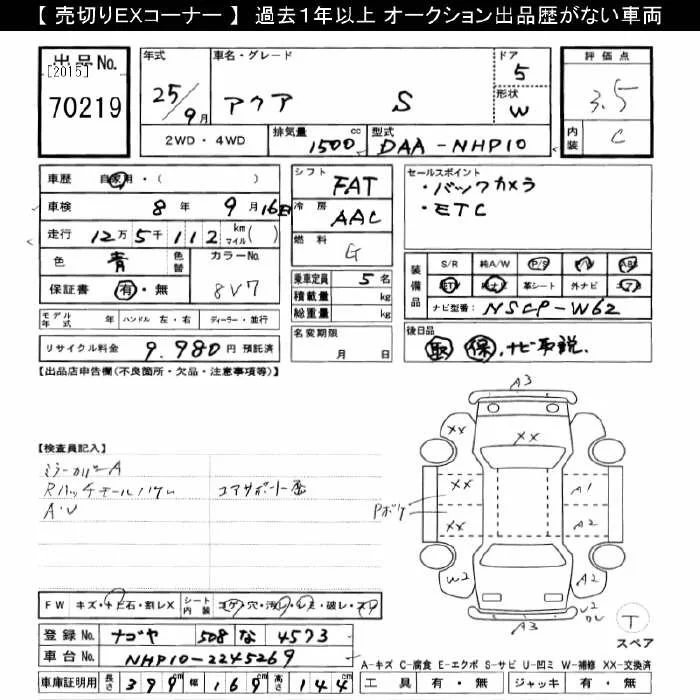 【 売切りEXコーナー 】 過去１年以上 オークション出品歴がない車両
出品No.
[2015]
70219
年式
25/9月
車名・グレード
アクア S
ドア
5
形状
W
評価点
3.5
内装
C
2WD・4WD
排気量 1500 cc
型式 DAA-NHP10
車歴 自家用・( )
車検 8年 9月 16日
走行 12万5千112 km マイル( )
色 青 色替
カラーNo. 8V7
保証書 有・無
シフト FAT
冷房 AAC
燃料 G
乗車定員 5名
積載量 kg
総重量 kg
セールスポイント
・バックカメラ
・ETC
装備品
S/R 純A/W P/S P/W ABS
ETC 純ナビ 革シート 外ナビ エアB
ナビ型番: NSCP-W62
モデル年式 年 ハンドル 左・右 ディーラー・並行
リサイクル料金 9.980円 預託済
名変期限
月 日
後日品
取 保. ナビ取説.
【出品店申告欄(不良箇所・欠品・注意事項等)】
【検査員記入】
ミラーカバーA
Rハッチモールハゲ
コアサポート歪
A・U
A3
XX
XX
XX
A1
Pボケ
XX
A2
W2
A2
U2
A3
T
スペア
FW キズ・トビ石・割レX
シート内装 コゲ・穴・汚レ・シミ・破レ・スレ
登録No. ナゴヤ 508 な 4573
車台No. NHP10-2245269
車庫証明用 長さ 399cm 幅 169cm 高さ 144cm
A-キズ C-腐食 E-エクボ S-サビ U-凹ミ W-補修 XX-交換済
工具 有・無 ジャッキ 有・無